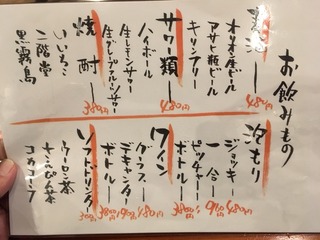 お飲みもの
オリオン生ビール
アサヒ瓶ビール
キリンフリー
480円
サワー類
ハイボール
生レモンサワー
生グレープフルーツサワー
480円
焼酎
いいちこ
二階堂
黒霧島
380円
泡もり
ジョッキー 480円
一合 980円
ピッチャー
ボトル 3800円
ワイン
グラス 480円
デキャンタ
ボトル
ソフトドリンク 300円
ウーロン茶
さんぴん茶
コカコーラ